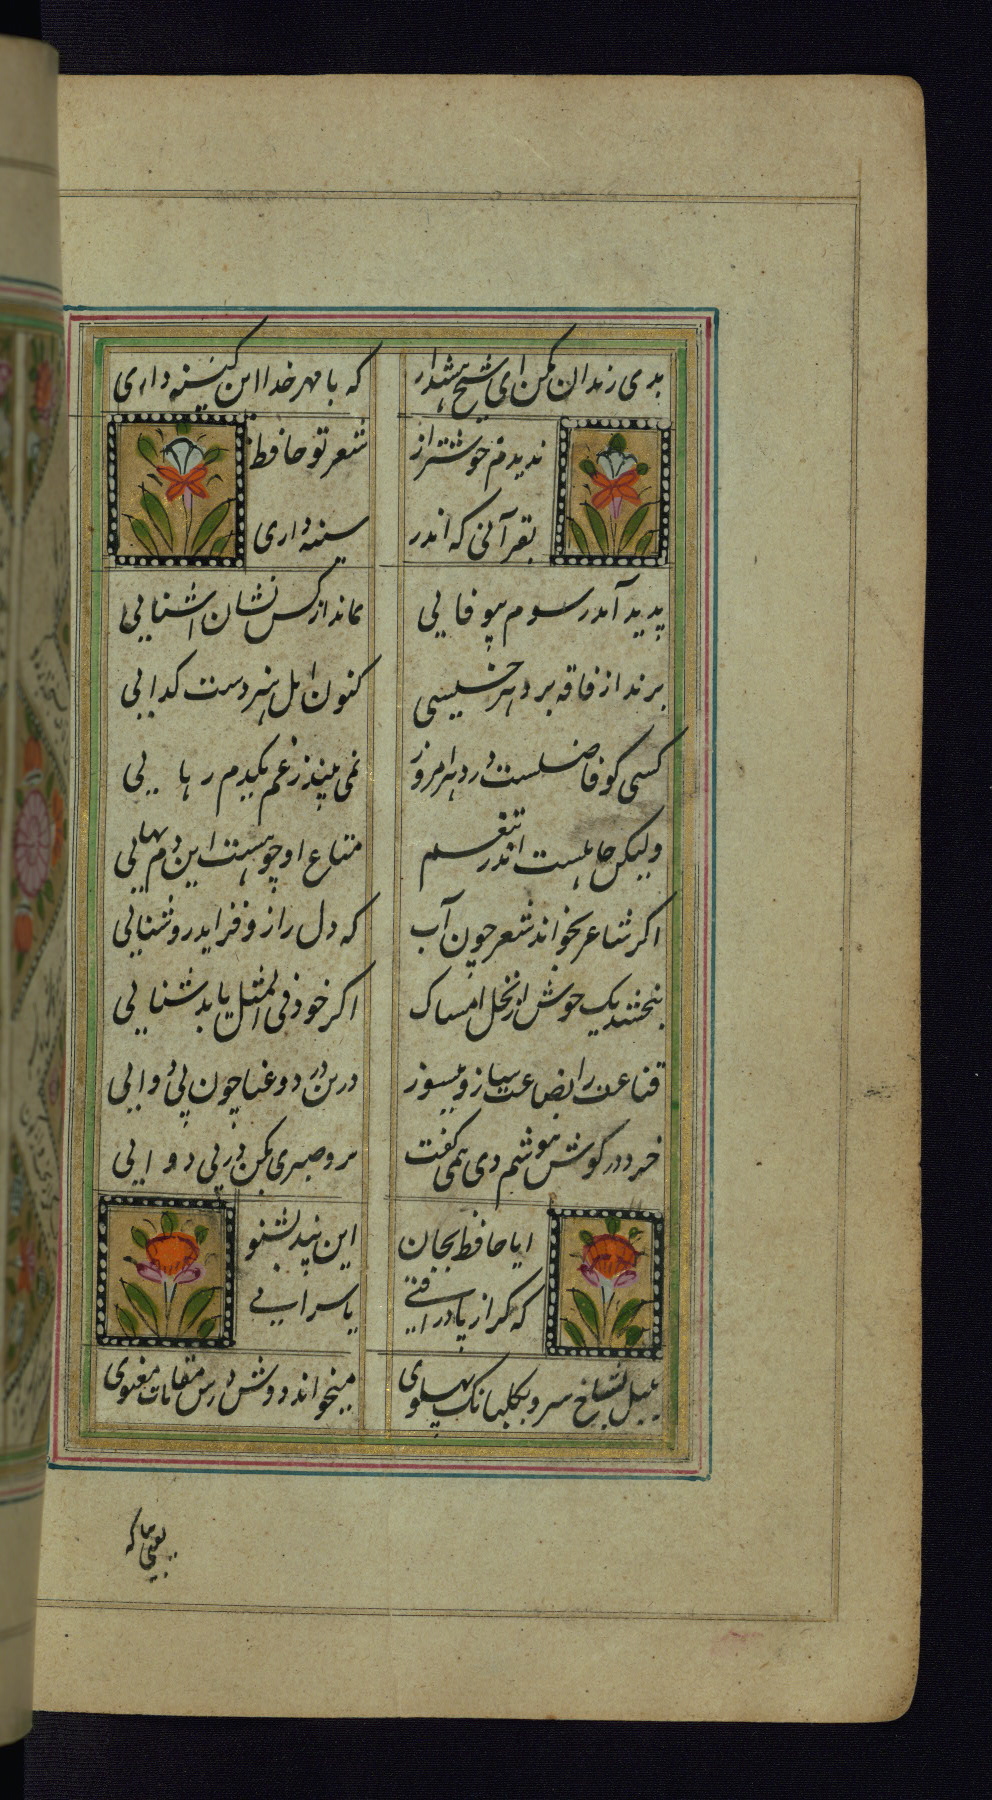 بدی زندان مکن ای شیخ هشدار که با مهر خدا این کینه داری
ندیدم خوشتر از شعر تو حافظ
بقرآنی که اندر سینه داری
پدید آمد رسوم بیوفایی نماند از کس نشان اشنایی
برند از فاقه بر هر خسیسی کنون اهل هنر دست کدایی
کسی کو فاضلست در دهر امروز نمی بیند ز غم یکدم رهایی
ولیکن جاهلست اندر تنعم متاع او چو هست این دم بهایی
اکر شاعر بخواند شعر چون آب که دل را زو فزاید روشنایی
نبخشندیک جوش از بخل امساک اکر خود فی المثل باید شنایی
قناعت را بضاعت ساز و میسوز درین درد و عنا چون بی دوایی
خرد در کوش هوشم دی همی کفت برو صبری بکن در بی دوایی
ایا حافظ بجان این پند بشنو
که کر از پا در افتی با سر ایی
بلبل بشاخ سرو بکلبانک پهلوی میخواند دوش درس مقامات معنوی
یعنی بیا که